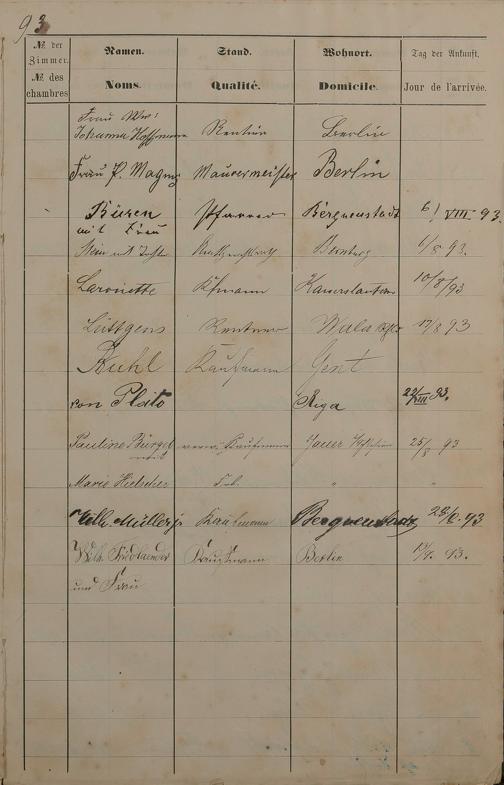 93
№ der Zimmer. Namen. Stand. Wohnort. Tag der Ankunft.
№ des chambres Noms. Qualité. Domicile. Jour de l'arrivée.
Frau Ww:
Johanna Hoffmann Rentier Berlin
Frau P. Magny Maurermeister Berlin
Büren Pfarrer Bergneustadt 6/VIII 93.
mit Frau
Stein mit Bernburg 6/8 93.
Laronette Kfmann 10/8/93
Lüttgens Rentner 17/8 93
Kuhl Kaufmann Gent
von Plato Riga 22/VIII 93.
Pauline Bürgel Kaufmann Jauer 25/8 93
mit
Marie Hielscher Frl. " "
Wilh. Müller jr Kaufmann Bergneustadt 93
Wilh. Friedlaender Kaufmann Berlin 93.
und Frau